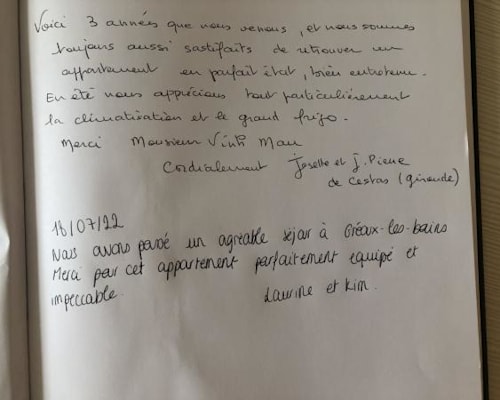 Voici 3 années que nous venons, et nous sommes
toujours aussi satisfaits de retrouver un
appartement en parfait état, bien entretenu.
En été nous apprécions tout particulièrement
la climatisation et le grand frigo.
Merci Monsieur
Cordialement Joselle et J. Pierre
de Cestas (Gironde)
18/07/22
Nous avons passé un agréable séjour à Gréoux-les-bains
Merci pour cet appartement parfaitement équipé et
impeccable. Laurine et Kim.